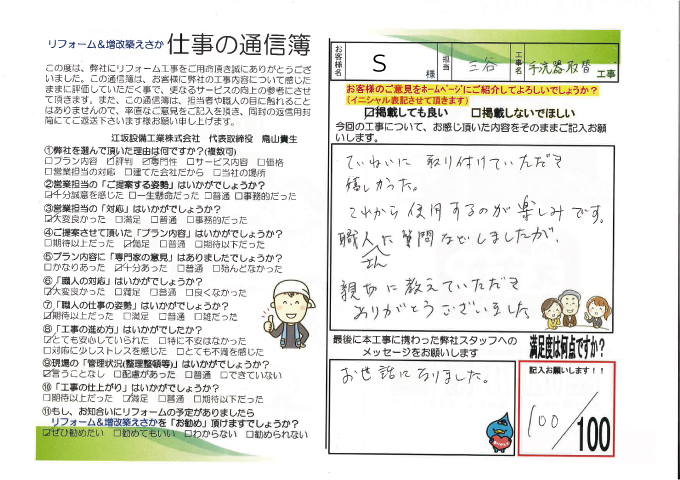 リフォーム&増改築えさか 仕事の通信簿
この度は、弊社にリフォーム工事をご用命頂き誠にありがとうござ
いました。この通信簿は、お客様に弊社の工事内容について感じた
ままに評価していただく事で、更なるサービスの向上の参考にさせ
て頂きます。また、この通信簿は、担当者や職人の目に触れること
はありませんので、率直なご意見をご記入を頂き、同封の返信用封
筒にてご返送下さいます様お願い申し上げます。
江坂設備工業株式会社 代表取締役 鳥山貴生
①弊社を選んで頂いた理由は何ですか?(複数可)
□プラン内容 ☑評判 ☑専門性 □サービス内容 □価格
□営業担当の対応 □建てた会社だから □当社の場所
②営業担当の「ご提案する姿勢」はいかがでしょうか?
☑十分誠意を感じた □一生懸命だった □普通 □事務的だった
③営業担当の「対応」はいかがでしょうか?
☑大変良かった □満足 □普通 □事務的だった
④ご提案させて頂いた「プラン内容」はいかがでしょうか?
□期待以上だった ☑満足 □普通 □期待以下だった
⑤プラン内容に「専門家の意見」はありましたでしょうか?
□かなりあった ☑十分あった □普通 □殆んどなかった
⑥「職人の対応」はいかがでしょうか?
☑大変良かった □満足 □普通 □良くなかった
⑦「職人の仕事の姿勢」はいかがでしょうか?
☑期待以上だった □満足 □普通 □雑だった
⑧「工事の進め方」はいかがでしたか?
☑とても安心していられた □特に不安はなかった
□対応に少しストレスを感じた □とても不満を感じた
⑨現場の「管理状況(整理整頓等)」はいかがでしょうか?
☑言うことなし □配慮があった □普通 □できていない
⑩「工事の仕上がり」はいかがでしょうか?
□期待以上だった ☑満足 □普通 □期待以下だった
⑪もし、お知合いにリフォームの予定がありましたら
リフォーム&増改築えさかを「お勧め」頂けますでしょうか?
☑ぜひ勧めたい □勧めてもいい □わからない □勧められない
お客様名 S 様 担当 三谷 工事名 手洗器取替 工事
お客様のご意見をホームページにご紹介してよろしいでしょうか?
(イニシャル表記させて頂きます)
☑掲載しても良い □掲載しないでほしい
今回の工事について、お感じ頂いた内容をそのままご記入お願
いします。
ていねいに取り付けていただき
嬉しかった。
これから使用するのが楽しみです。
職人さんに質問などしましたが、
親切に教えていただき
ありがとうございました
最後に本工事に携わった弊社スタッフへの
メッセージをお願いします
お世話になりました。
満足度は何点ですか?
記入お願いします!!
100/100